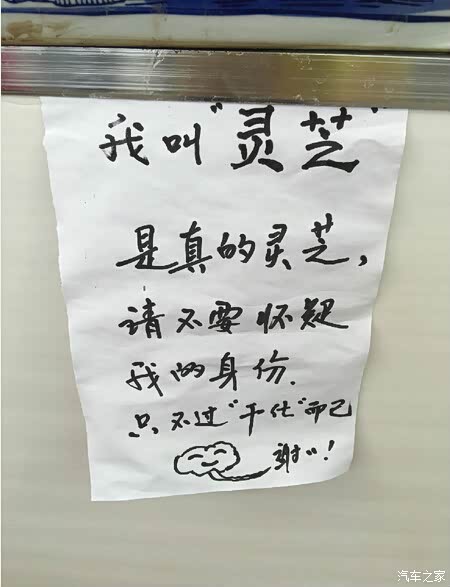 我叫“灵芝”
是真的灵芝，
请不要怀疑
我的身份.
只不过“干化”而己
谢〃!
汽车之家